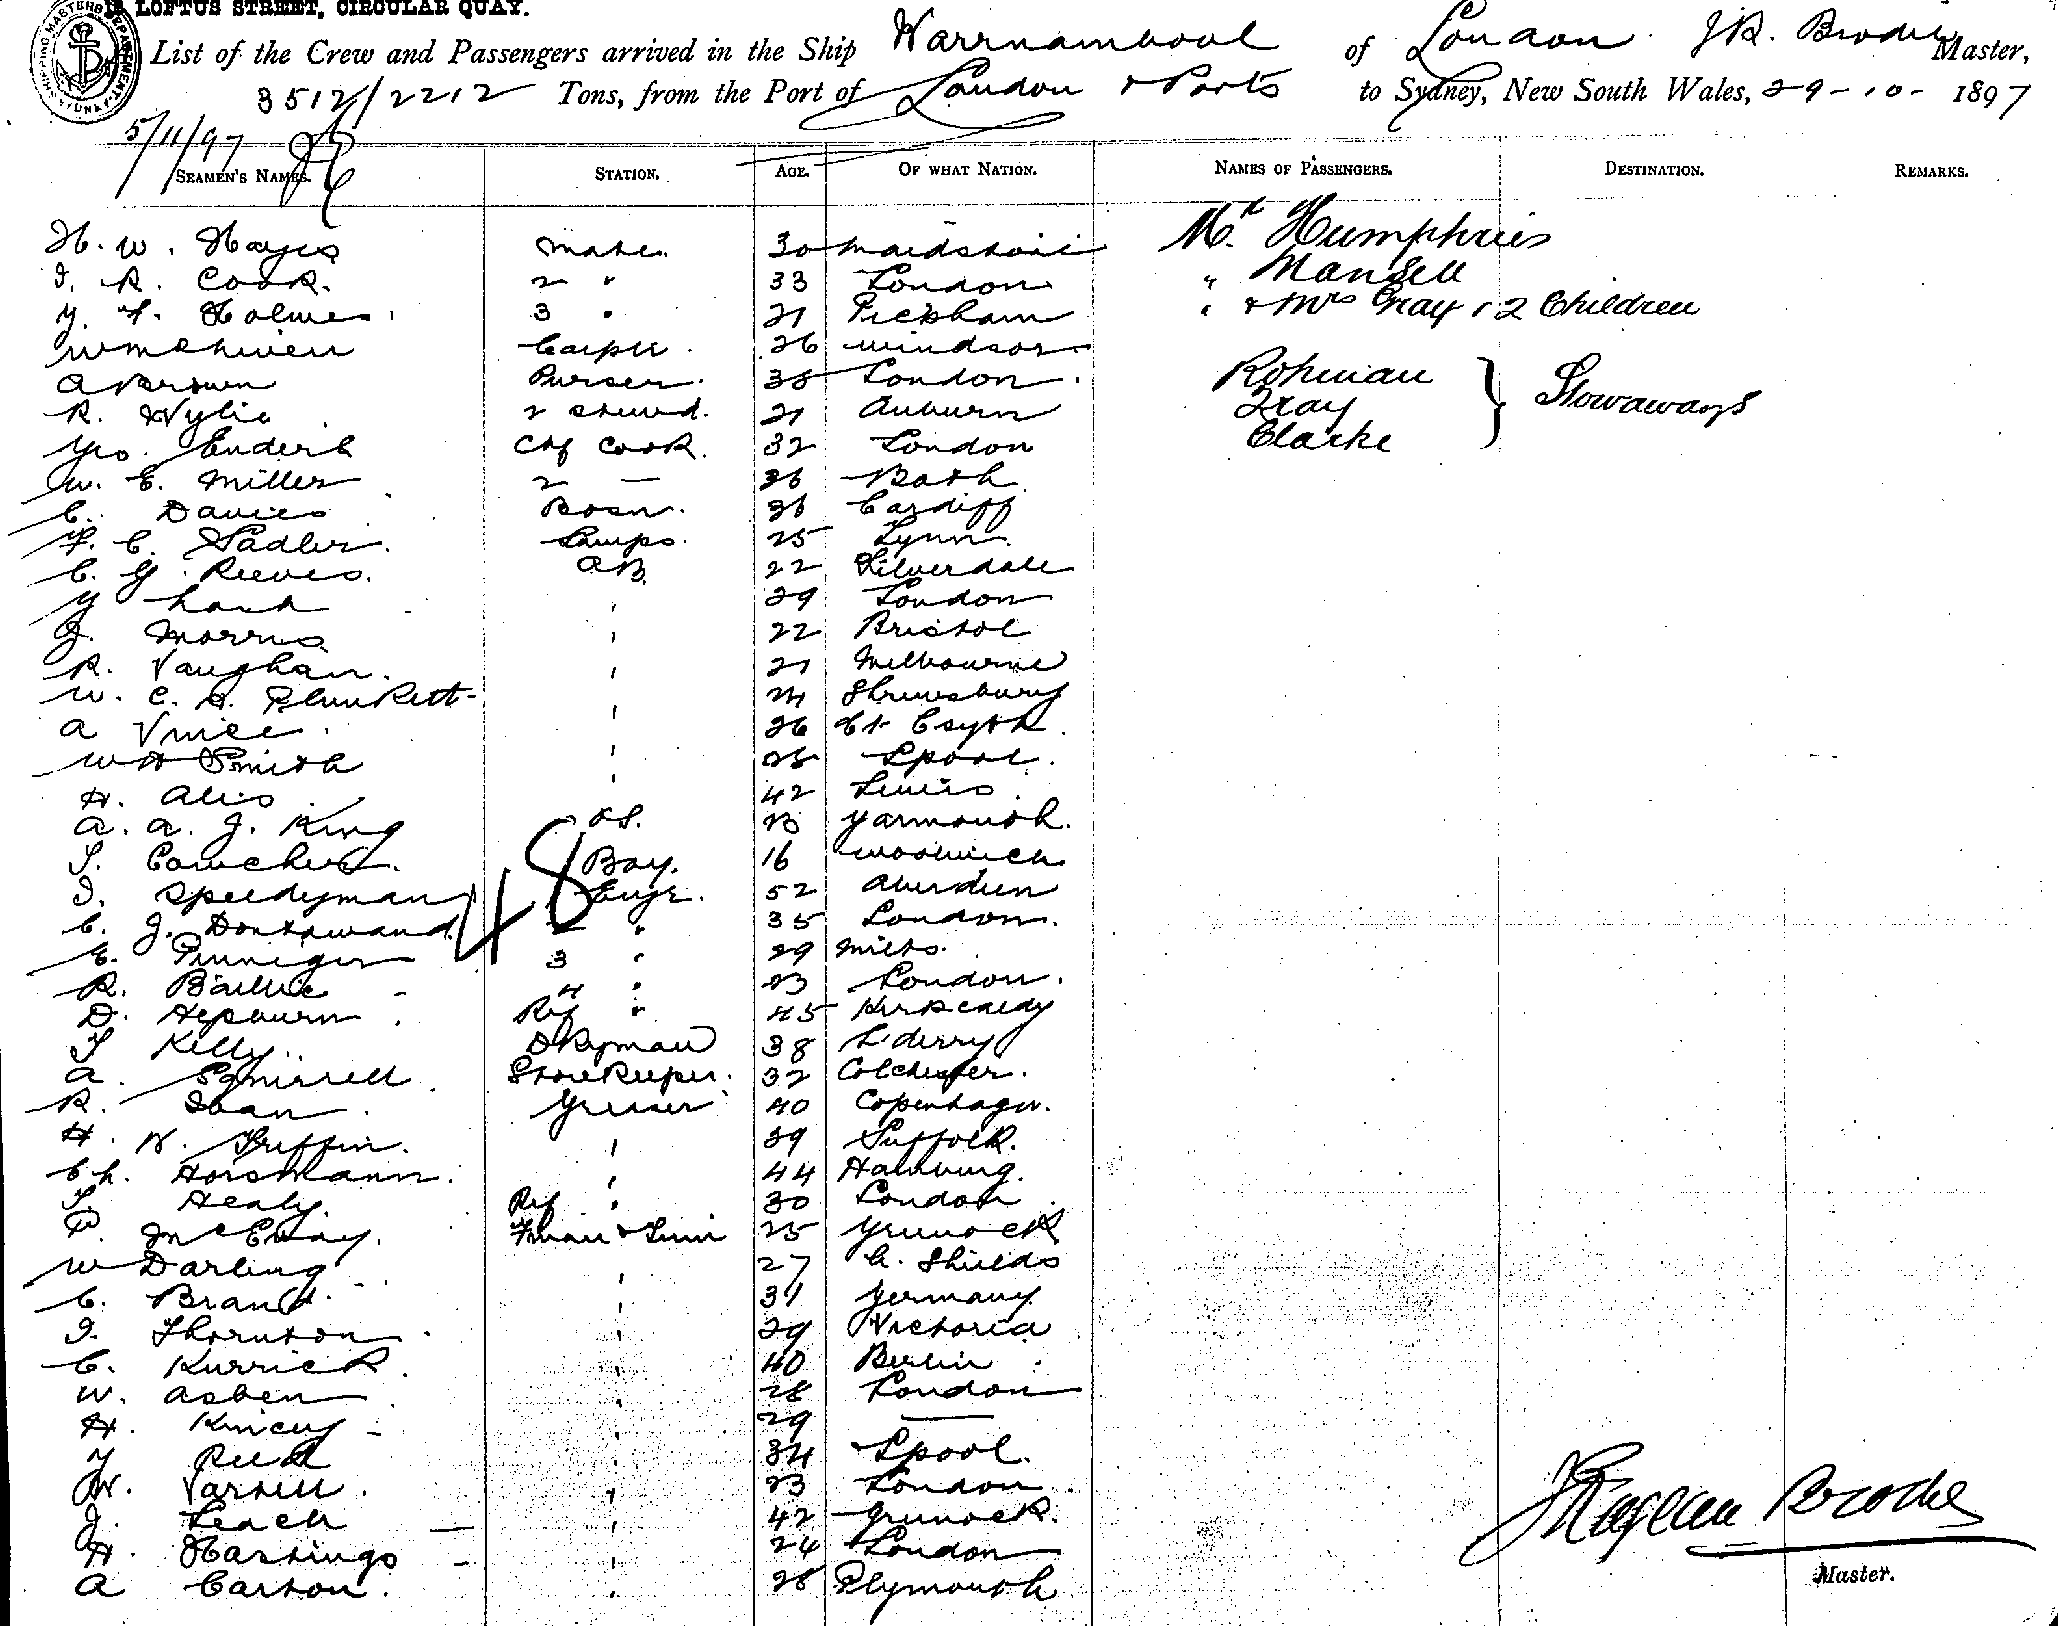 LOFTUS STREET, CIRCULAR QUAY.
List of the Crew and Passengers arrived in the Ship Warrnambool of London J R. Brodie Master,
3512/2212 Tons, from the Port of London & Ports to Sydney, New South Wales, 29-10-1897
5/11/97
SEAMEN'S NAMES. STATION. AGE. OF WHAT NATION. NAMES OF PASSENGERS. DESTINATION. REMARKS.
H. W. Hayes Mate. 30 Maidstone Mr. Humphries
J. R. Cook. 2 " 33 London " Mansell
G. F. Holmes 3 " 21 Peckham " & Mrs Gray , 2 Children
Carptr. 26 Windsor
A Brown Purser. 38 London Rohman } Stowaways
R. Wylie 2 Stewd. 21 Auburn Gray
Geo. Enderb Chf Cook. 32 London Clarke
W. E. Miller 2 — 26 Bath
C. Davies Bosn. 36 Cardiff
F. C. Sadler Lamps. 25 Lynn
C. G. Reeves. AB. 22 Silverdale
G " 29 London
J. Morris " 22 Bristol
R. Vaughan. " 21 Melbourne
W. C. A. Plunkett " 24 Shrewsbury
A Vince " 26 St Osyth
W H Smith " 28 Lpool.
H. " 42 Lewis
A. A. J. King O.S. 23 Yarmouth.
S. Boy. 16 Woolwich
J. Speedyman Engr. 52 Aberdeen
48
C. J. 2 " 35 London.
E. Pinniger 3 " 29 Wilts.
R. Baillie 4 " 23 London.
D. Hepburn Ref " 45 Kirkcaldy
T Kelly. Dkyman 38 L'derry
A. Squirrell Storekeeper. 32 Colchester.
R. Greaser 40 Copenhagen.
H. W. Griffin. " 39 Suffolk.
Ch. Horsmann. " 44 Hamburg.
T Healy. Ref " 30 London
P. McEvoy. Fman & Trim 25 Greenock
W Darling " 27 Shields
C. Brandt " 31 Germany
J. Thornton " 29 Victoria
C. Kurrick " 40 Berlin
W. Asben " 28 London
H. " 29 —
" 34 Lpool.
W. Vartell. " 23 London
J. Leach " 42 Greenock.
H. Hastings " 24 London
A Carton. " 28 Plymouth
J Raglan Brodie
Master.